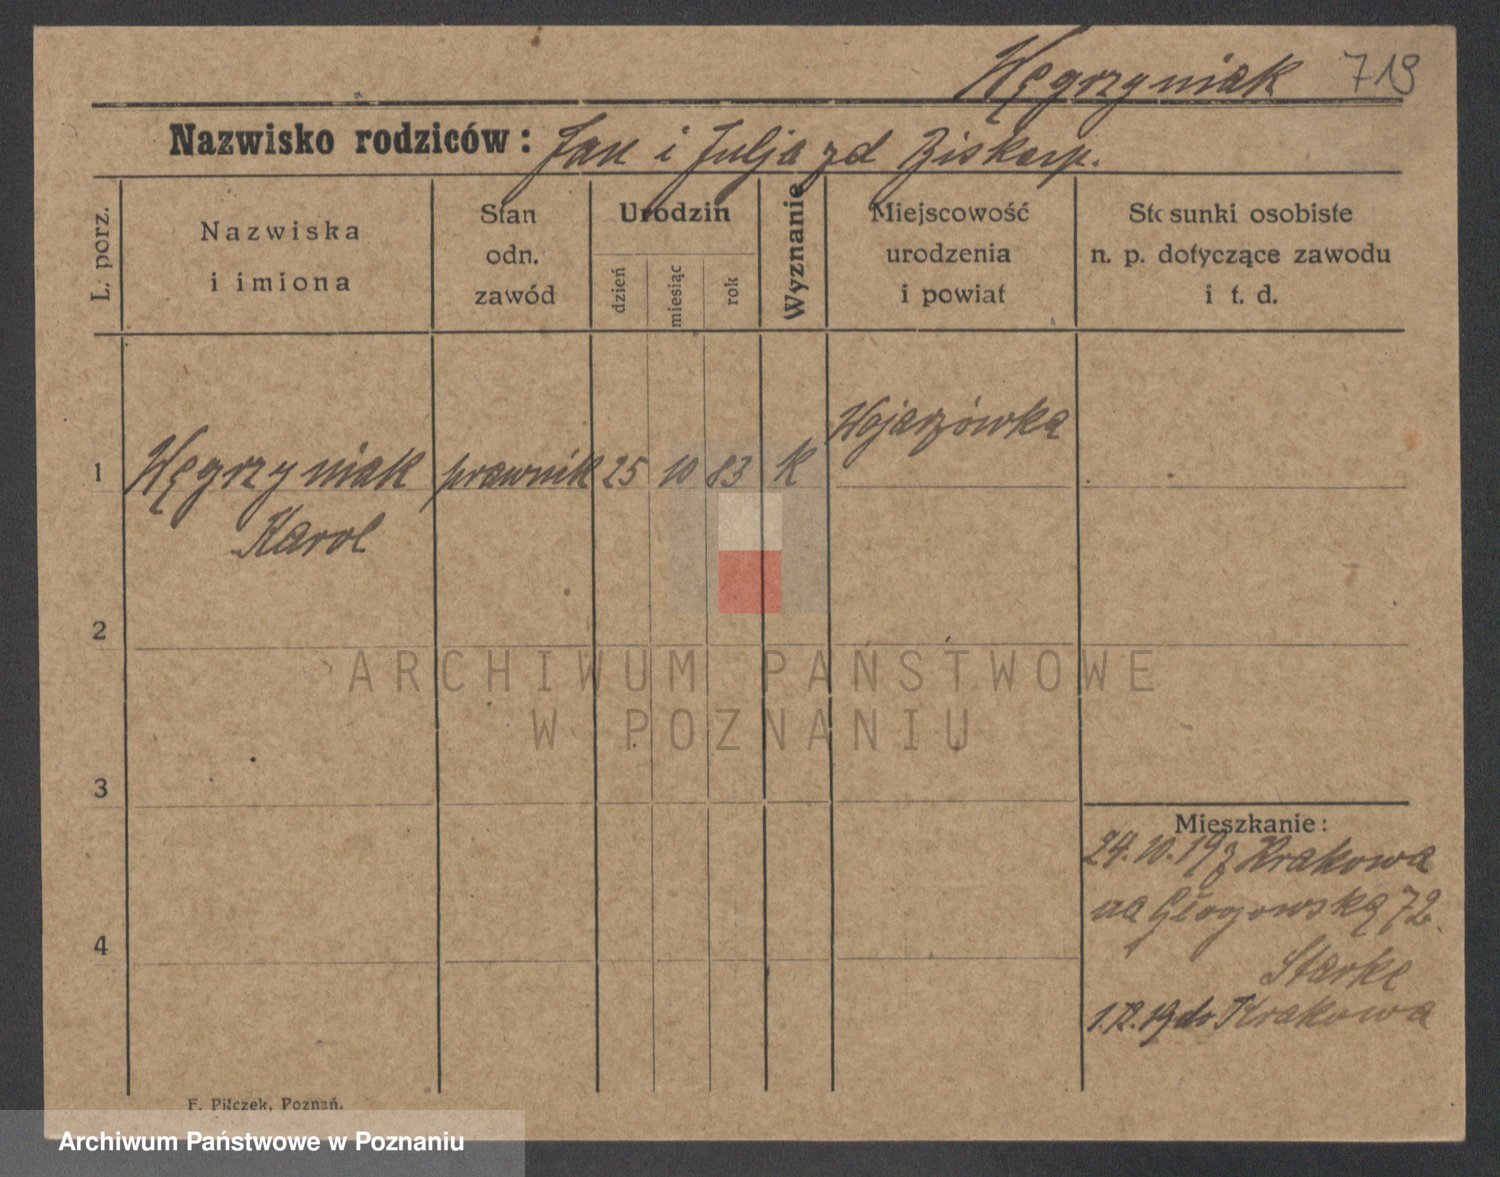 Węgrzyniak 719
Nazwisko rodziców: Jan i Julja zd Biskup.
L. porz.
Nazwiska
i imiona
Stan
odn.
zawód
Urodzin
dzień
miesiąc
rok
Wyznanie
Miejscowość
urodzenia
i powiat
Stosunki osobiste
n. p. dotyczące zawodu
i t. d.
Wojaszówka
1 Węgrzyniak prawnik 25 10 83 k
Karol
2
ARCHIWUM PAŃSTWOWE
W POZNANIU
3
Mieszkanie:
24.10.19 z Krakowa
na Głogowską 72.
4
Starke
1.12.19 do Krakowa
F. Pilczek, Poznań.
Archiwum Państwowe w Poznaniu